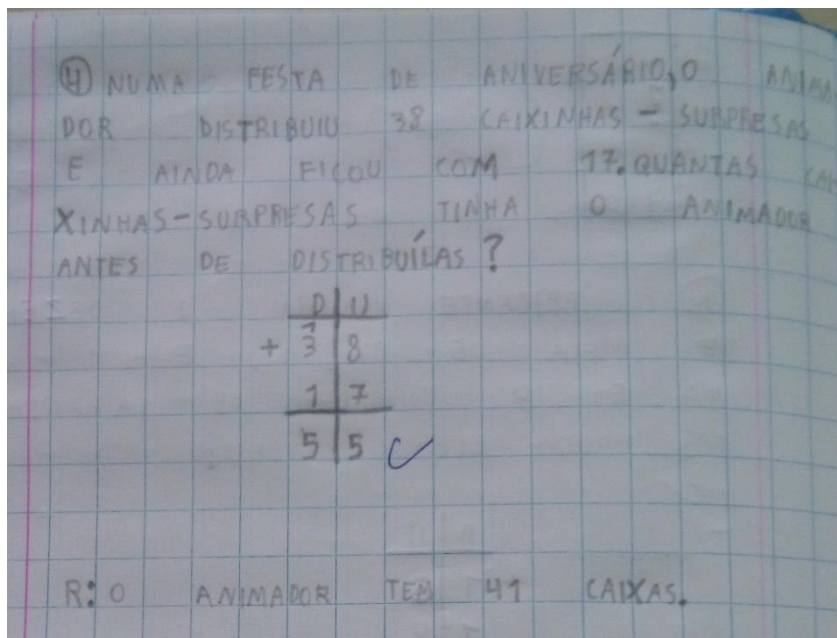 4 NUMA FESTA DE ANIVERSÁRIO, O ANIMA
DOR DISTRIBUIU 38 CAIXINHAS - SURPRESAS
E AINDA FICOU COM 17. QUANTAS CAI
XINHAS - SURPRESAS TINHA O ANIMADOR
ANTES DE DISTRIBUÍLAS?
D U
1
+ 3 8
1 7
5 5
R: O ANIMADOR TEM 41 CAIXAS.